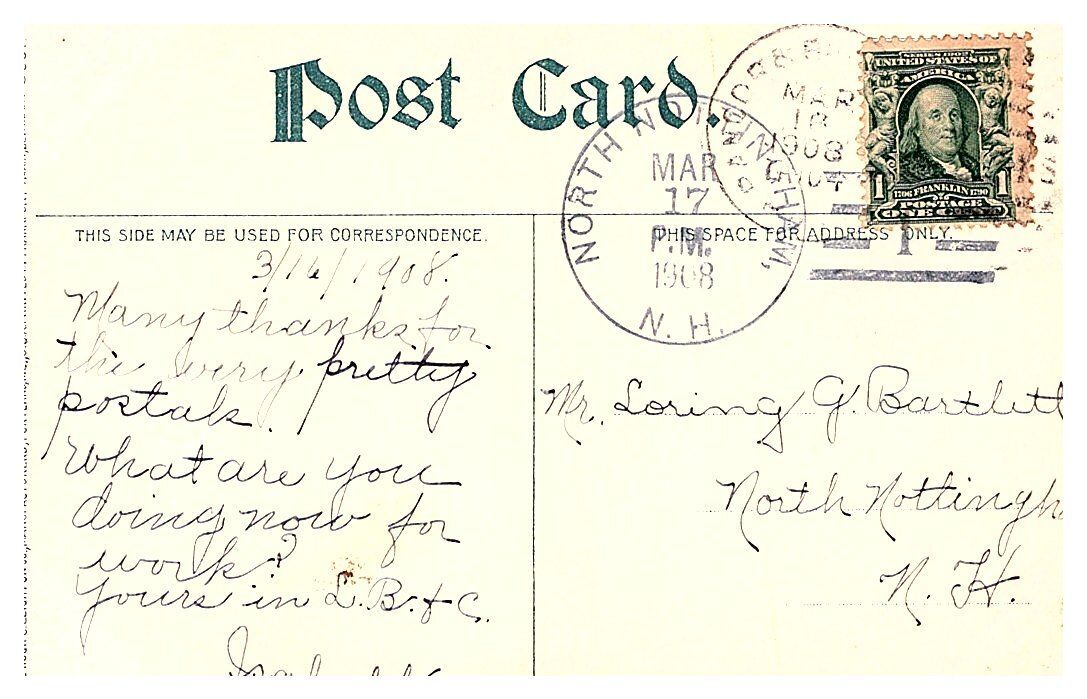 Post Card.
MAR
1908
NORTH NOTTINGHAM,
MAR
17
P.M.
1908
N. H.
SERIES 1902
UNITED STATES OF
AMERICA
1
1706 FRANKLIN 1790
1
POSTAGE
ONE CENT
THIS SIDE MAY BE USED FOR CORRESPONDENCE.
THIS SPACE FOR ADDRESS ONLY.
3/16/1908.
Many thanks for
the very pretty
postals.
What are you
doing now for
work?
Yours in L. B. & C.
Mr. Loring G. Bartlett
North Nottingh
N. H.